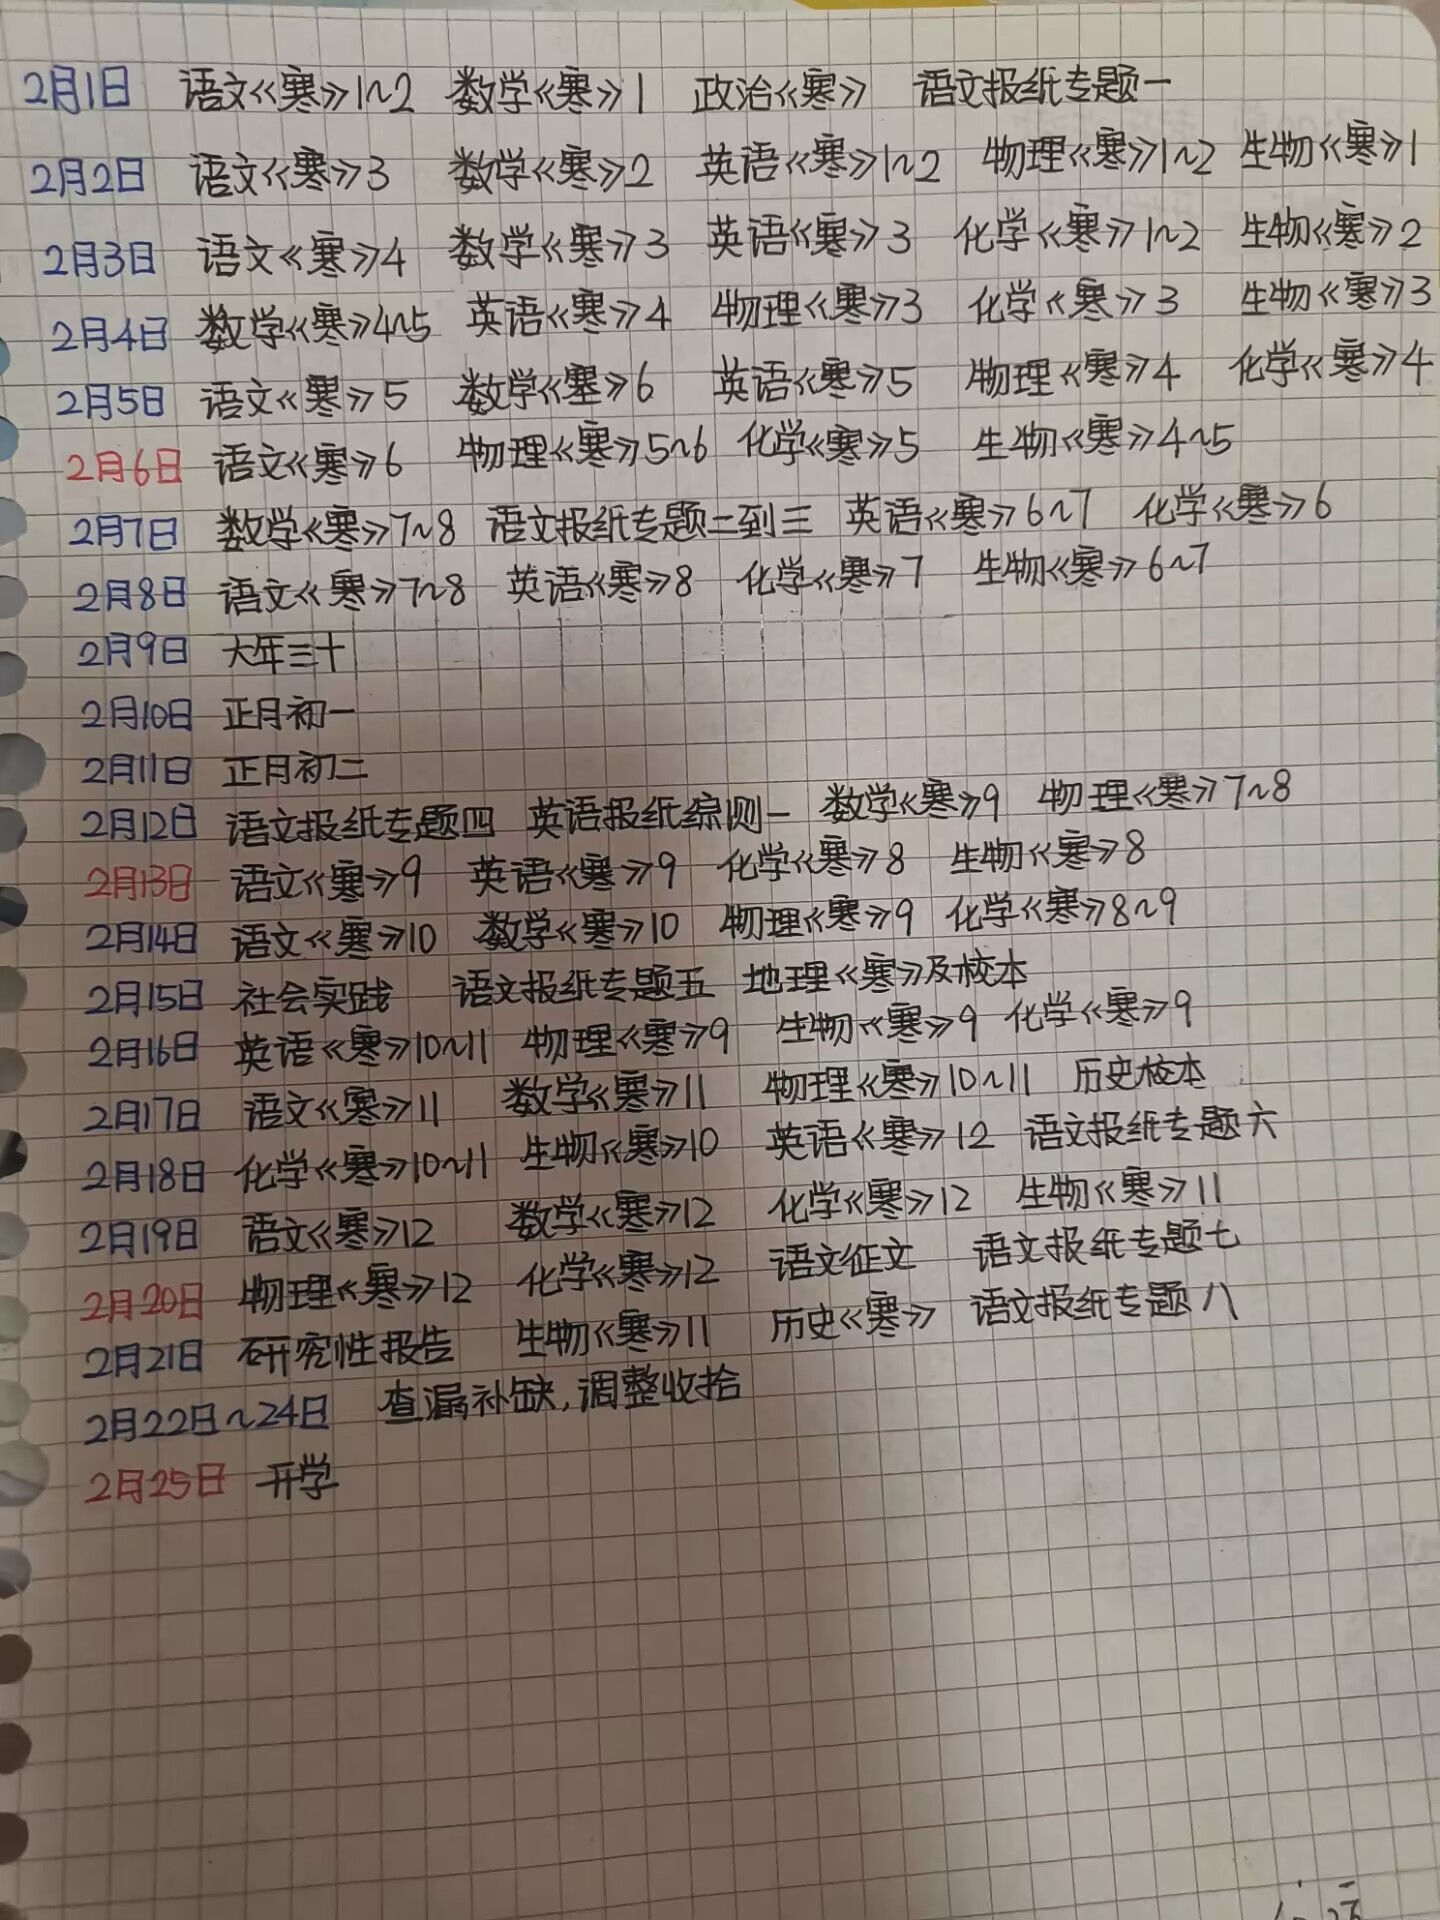 2月1日 语文《寒》1~2 数学《寒》1 政治《寒》 语文报纸专题一
2月2日 语文《寒》3 数学《寒》2 英语《寒》1~2 物理《寒》1~2 生物《寒》1
2月3日 语文《寒》4 数学《寒》3 英语《寒》3 化学《寒》1~2 生物《寒》2
2月4日 数学《寒》4~5 英语《寒》4 物理《寒》3 化学《寒》3 生物《寒》3
2月5日 语文《寒》5 数学《寒》6 英语《寒》5 物理《寒》4 化学《寒》4
2月6日 语文《寒》6 物理《寒》5~6 化学《寒》5 生物《寒》4~5
2月7日 数学《寒》7~8 语文报纸专题二到三 英语《寒》6~7 化学《寒》6
2月8日 语文《寒》7~8 英语《寒》8 化学《寒》7 生物《寒》6~7
2月9日 大年三十
2月10日 正月初一
2月11日 正月初二
2月12日 语文报纸专题四 英语报纸综测一 数学《寒》9 物理《寒》7~8
2月13日 语文《寒》9 英语《寒》9 化学《寒》8 生物《寒》8
2月14日 语文《寒》10 数学《寒》10 物理《寒》9 化学《寒》8~9
2月15日 社会实践 语文报纸专题五 地理《寒》及校本
2月16日 英语《寒》10~11 物理《寒》9 生物《寒》9 化学《寒》9
2月17日 语文《寒》11 数学《寒》11 物理《寒》10~11 历史校本
2月18日 化学《寒》10~11 生物《寒》10 英语《寒》12 语文报纸专题六
2月19日 语文《寒》12 数学《寒》12 化学《寒》12 生物《寒》11
2月20日 物理《寒》12 化学《寒》12 语文征文 语文报纸专题七
2月21日 研究性报告 生物《寒》11 历史《寒》 语文报纸专题八
2月22日~24日 查漏补缺,调整收拾
2月25日 开学